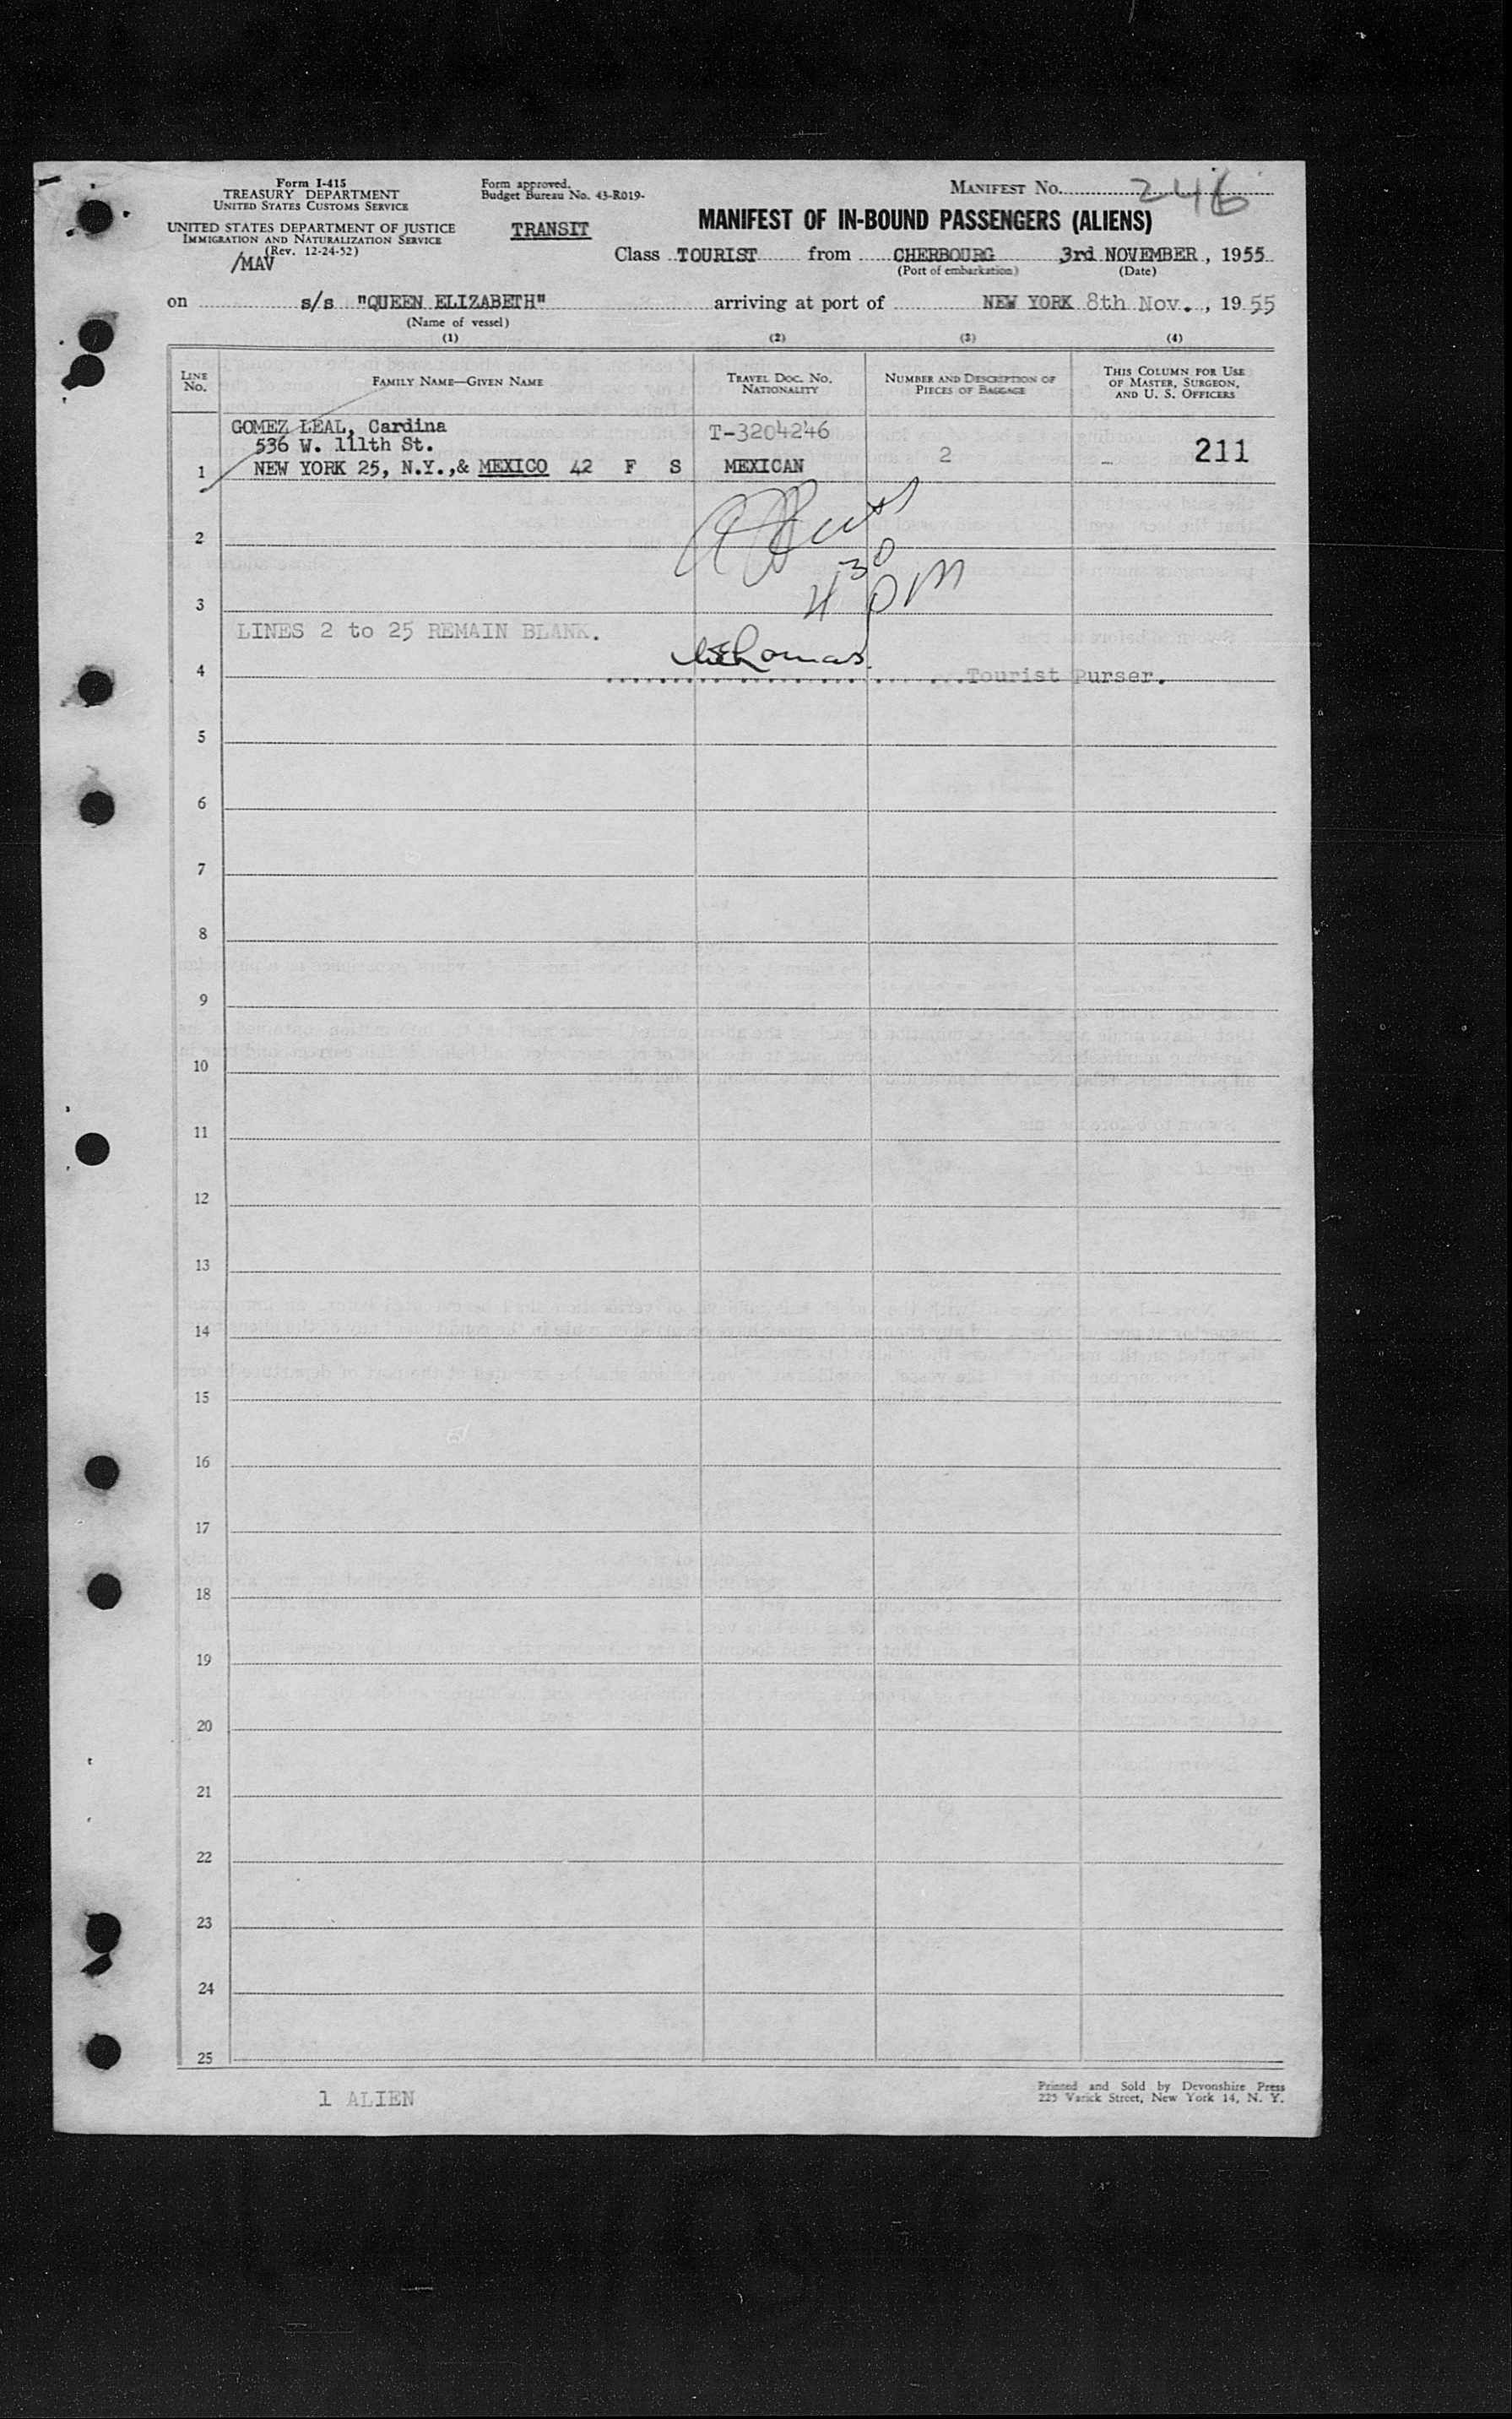 Form I-415
TREASURY DEPARTMENT
UNITED STATES CUSTOMS SERVICE
UNITED STATES DEPARTMENT OF JUSTICE
IMMIGRATION AND NATURALIZATION SERVICE
(Rev. 12-24-52)
/MAV
Form approved.
Budget Bureau No. 43-R019-
TRANSIT
MANIFEST NO. 246
MANIFEST OF IN-BOUND PASSENGERS (ALIENS)
Class TOURIST from CHERBOURG 3rd NOVEMBER, 1955
(Port of embarkation) (Date)
on s/s "QUEEN ELIZABETH" arriving at port of NEW YORK 8th Nov., 1955
(Name of vessel)
(1) (2) (3) (4)
LINE NO. FAMILY NAME—GIVEN NAME TRAVEL DOC. NO. NATIONALITY NUMBER AND DESCRIPTION OF PIECES OF BAGGAGE THIS COLUMN FOR USE OF MASTER, SURGEON, AND U. S. OFFICERS
GOMEZ LEAL, Cardina T-3204246
536 W. 111th St.
1 NEW YORK 25, N.Y.,& MEXICO 42 F S MEXICAN 2 - 211
2
430 PM
3
LINES 2 to 25 REMAIN BLANK.
4 Tourist Purser.
5
6
7
8
9
10
11
12
13
14
15
16
17
18
19
20
21
22
23
24
25
1 ALIEN
Printed and Sold by Devonshire Press
225 Varick Street, New York 14, N. Y.